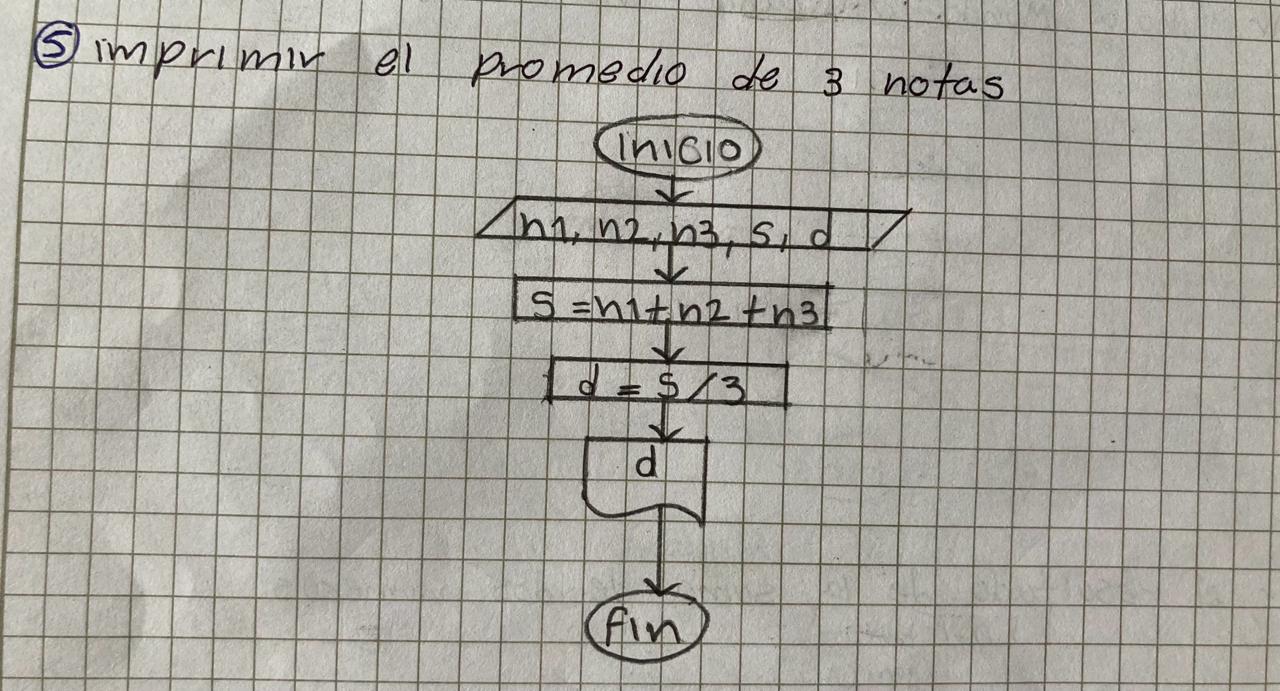 5 imprimir el promedio de 3 notas
inicio
n1, n2, n3, s, d
S = n1 + n2 + n3
d = S / 3
d
fin